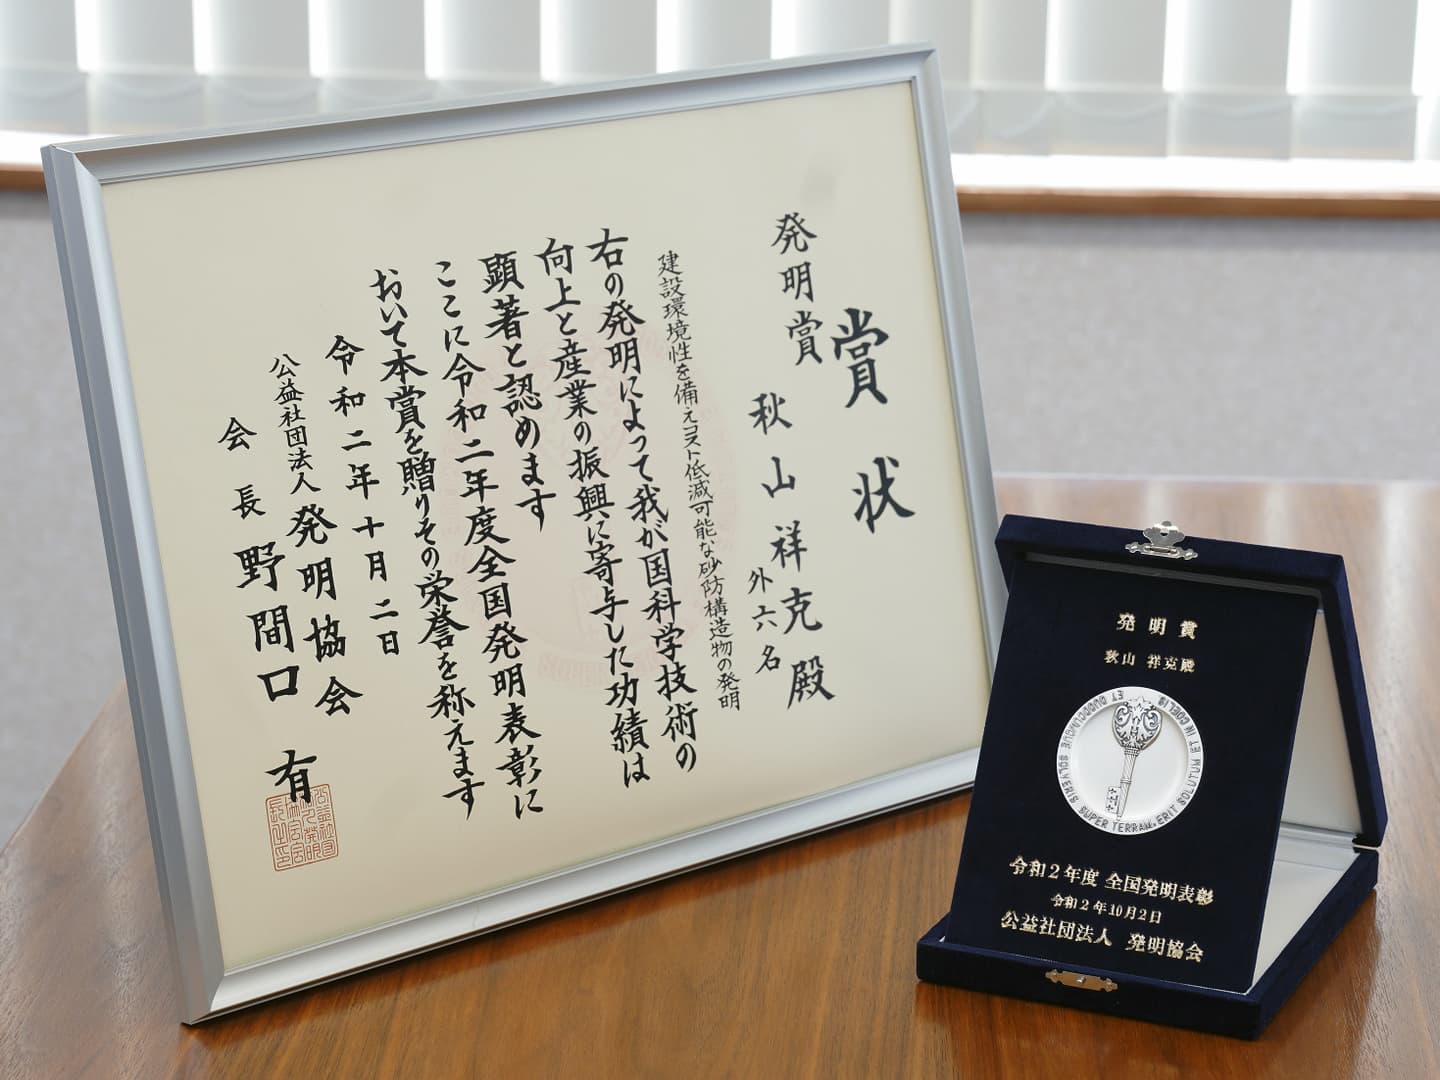 賞状
発明賞
秋山祥克殿
外六名
建設環境性を備えコスト低減可能な砂防構造物の発明
右の発明によって我が国科学技術の
向上と産業の振興に寄与した功績は
顕著と認めます
ここに令和二年度全国発明表彰に
おいて本賞を贈りその栄誉を称えます
令和二年十月二日
公益社団法人発明協会
会長 野間口 有
発明賞
秋山 祥克殿
ET QUODCUMQUE SOLVERIS SUPER TERRAM, ERIT SOLUTUM ET IN COELIS
令和2年度 全国発明表彰
令和2年10月2日
公益社団法人 発明協会